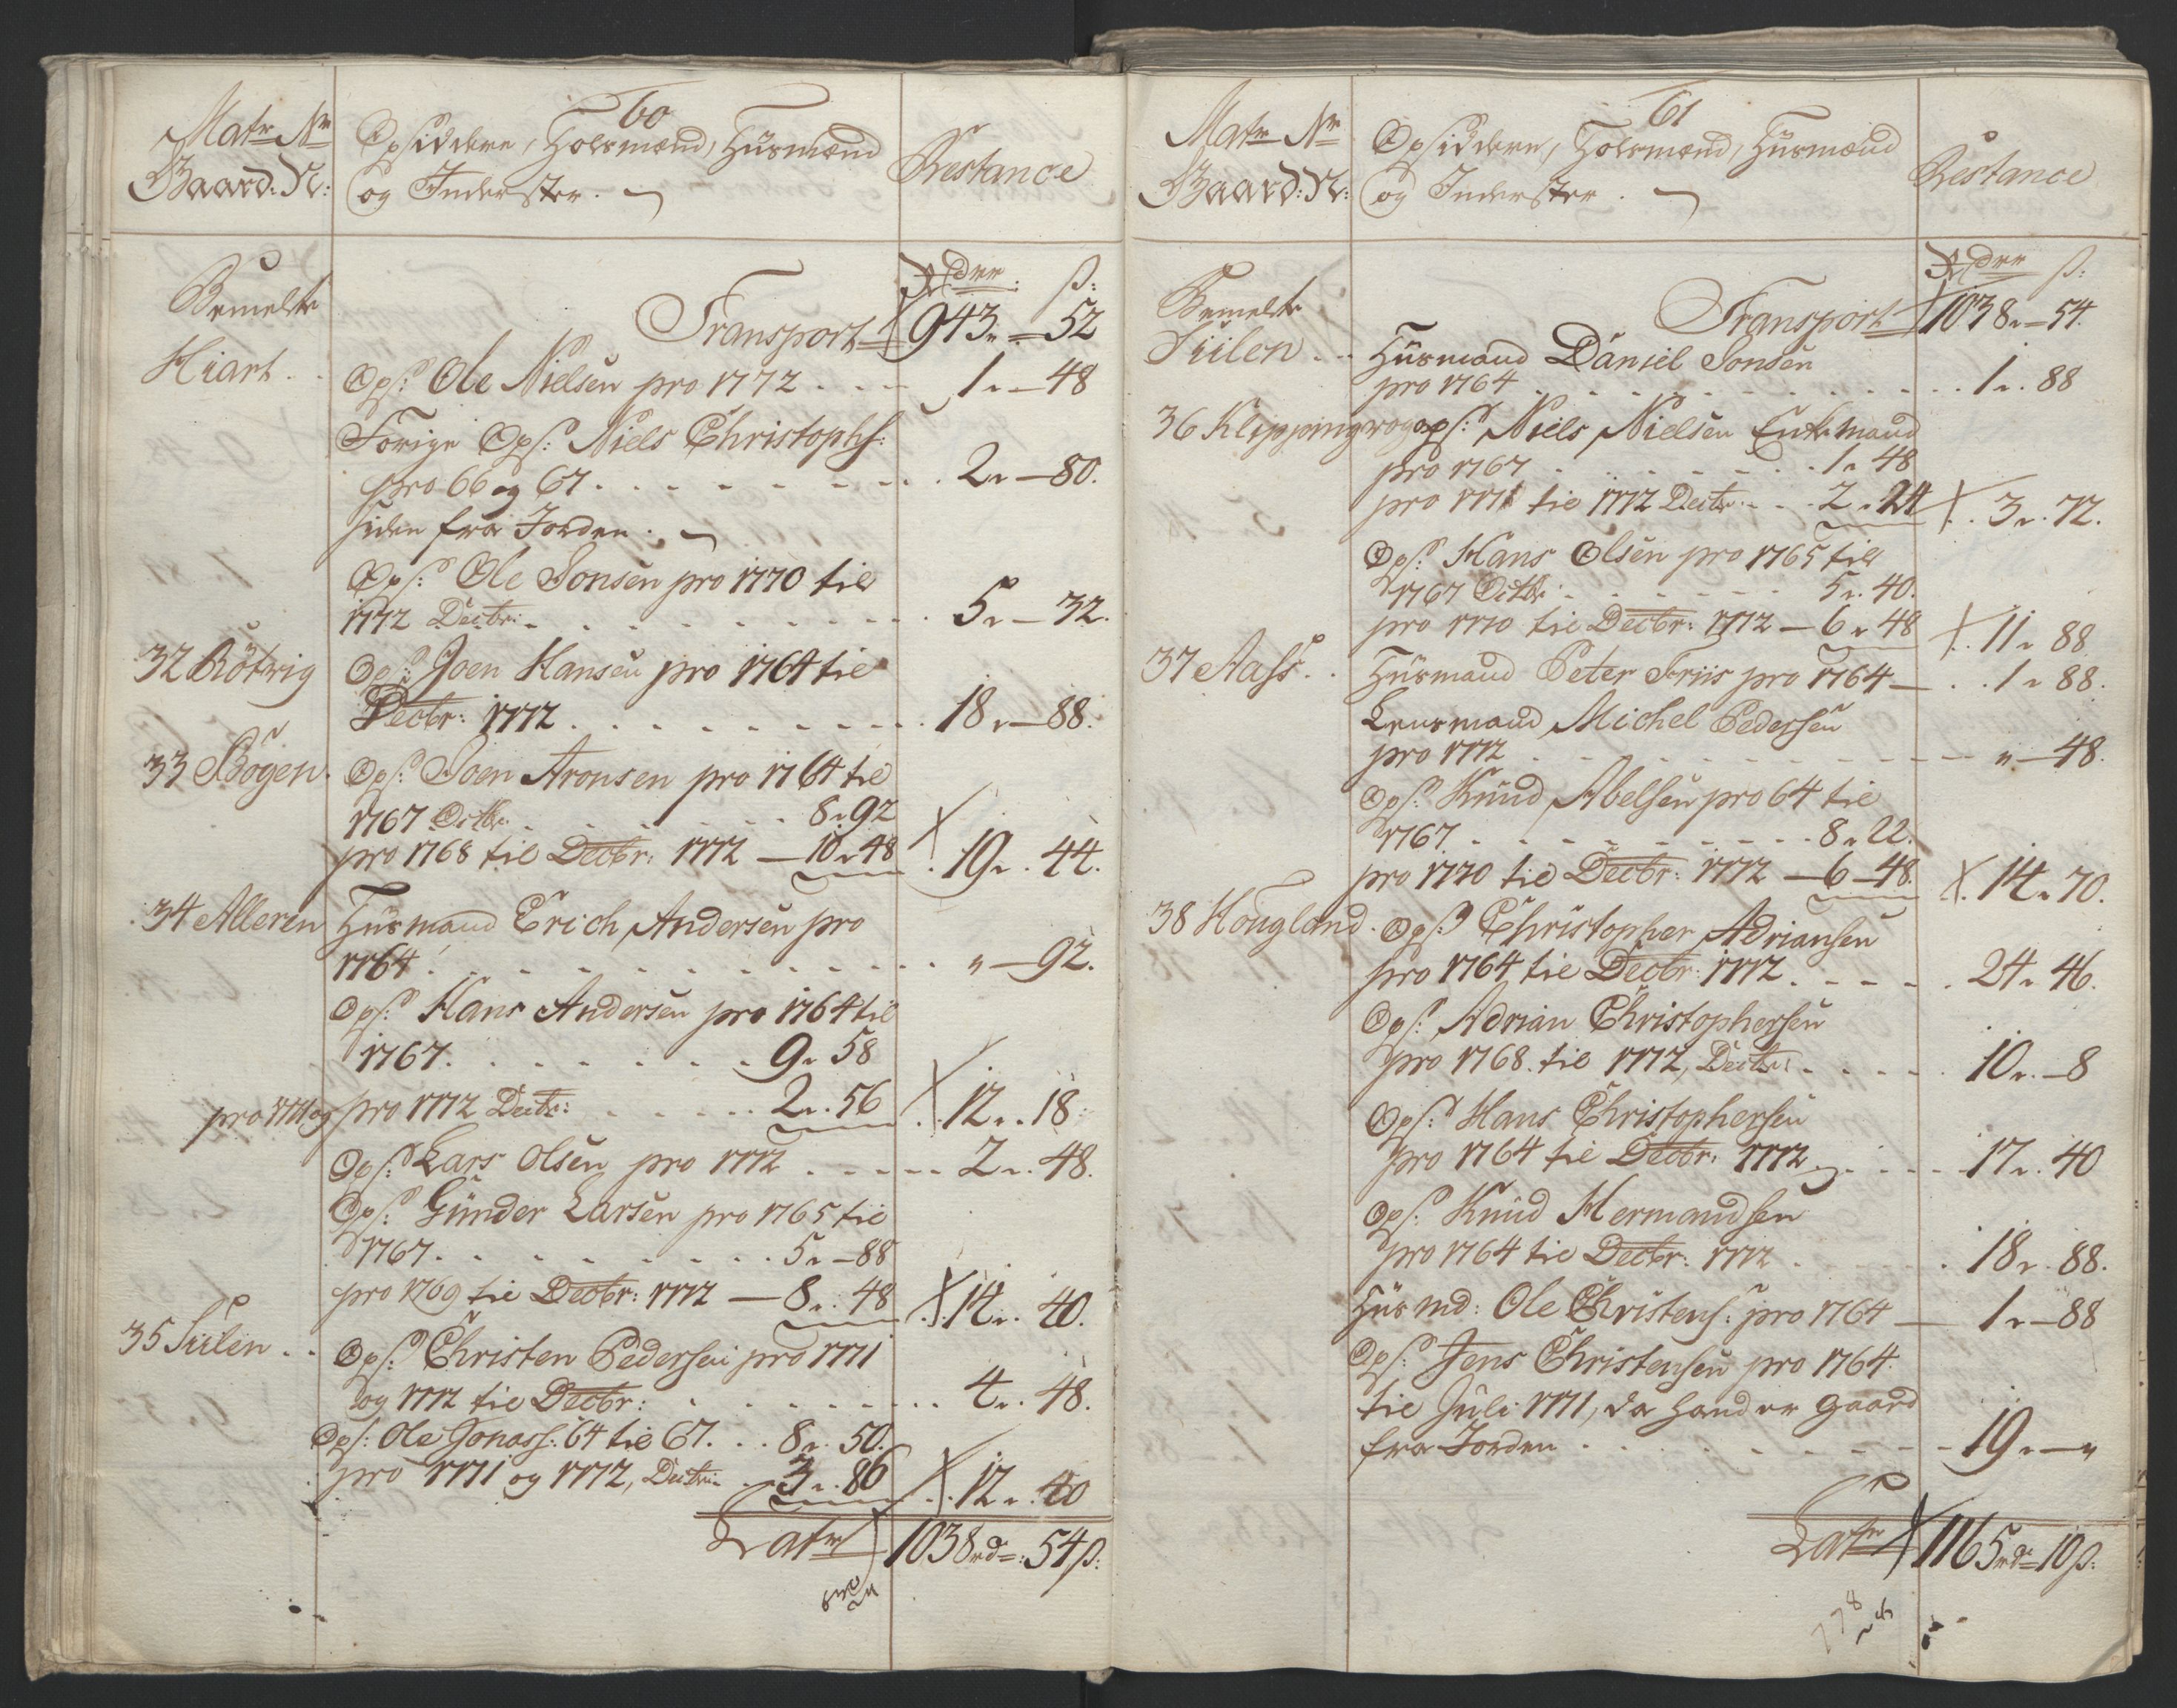 60
Matr Nr
Gaard: N:
Opsiddere, Holsmænd, Huusmænd
og Inderster.
Restance
Bemelte
Rdr: ß:
Transport 943 „ – 52
Hiart . .
Ops: Ole Nielsen pro 1772 . . . 1 „ – 48
Forige Ops: Niels Christophs:
pro 66 og 67 . . . . . . . 2 „ – 80.
siden fra Jorden.
Ops: Ole Jonsen pro 1770 til
1772 Decbr: . . . . . . . 5 „ – 32.
32 Rötvig
Ops: Joen Hansen pro 1764 til
Decbr: 1772 . . . . . . . 18 „ – 88.
33 Bögen.
Ops: Joen Aronsen pro 1764 til
1767 Octbr. . . . . . 8 „ 92
pro 1768 til Decbr: 1772 — 10 „ 48 . 19 „ . 44.
34 Alleren
Huusmand Erich Andersen pro
1764 . . . . . . . . . „ – 92.
Ops: Hans Andersen pro 1764 til
1767. . . . . . . 9 „ 58
pro 1771 og pro 1772 Decbr: . . . . 2 „ . 56 . 12 „ . 18
Ops: Lars Olsen pro 1772 . . . . . 2 „ . 48.
Ops: Gunder Larsen pro 1765 til
1767. . . . . . . . 5 „ – 88
pro 1769 til Decbr: 1772 — 8 „ . 48 . 14 „ . 40.
35 Siilen . .
Ops: Christen Pedersen pro 1771
og 1772 til Decbr: . . . . . . 4 „ . 48.
Ops: Ole Jonass: 64 til 67. . . 8 „ . 50.
pro 1771 og 1772, Decbr: . 3 „ . 86 . 12 „ . 40
Latr 1038 rd: 54 ß:
61
Matr Nr
Gaard: N:
Opsiddere, Holsmænd, Huusmænd
og Inderster.
Restance
Bemelte
Rdr ß:
Transport 1038 „ – 54.
Siilen . .
Huusmand Daniel Jonsen
pro 1764 . . . . . . . . . 1 „ . 88
36 Klippingvog
ops: Niels Nielsen Enkemand
pro 1767 . . . . . . . 1 „ 48
pro 1771 til 1772 Decbr: . . . 2 „ 24 . . 3 „ . 72.
Ops: Hans Olsen pro 1765 til
1767 Octbr: . . . . . . 5 „ . 40.
pro 1770 til Decbr: 1772 — 6 „ 48 . . 11 „ 88
37 Aass . .
Huusmand Peter Friis pro 1764 — . . 1 „ 88.
Lensmand Michel Pedersen
pro 1772 . . . . . . . . . „ – 48.
Ops: Knud Abelsen pro 64 til
1767. . . . . . . . . 8 „ 22.
pro 1770 til Decbr: 1772 — 6 – 48. . 14 „ 70.
38 Hougland .
Ops: Christopher Adriansen
pro 1764 til Decbr: 1772 . . . . . 24 „ 46.
Ops: Adrian Christophersen
pro 1768. til 1772, Decbr: . . . . . 10 „ . – 8
Ops: Hans Christophersen
pro 1764 til Decbr: 1772 . . . . . 17 „ . 40
Ops: Knud Hermandsen
pro 1764 til Decbr: 1772 . . . . 18 „ . 88.
Huusmd: Ole Christens: pro 1764 — 1 „ – 88
Ops: Jens Christensen pro 1764
til Juli 1771, da hand er gaaed
fra Jorden . . . . . . . . 19 „ — „
Latr 1165 rd: 10 ß:
778